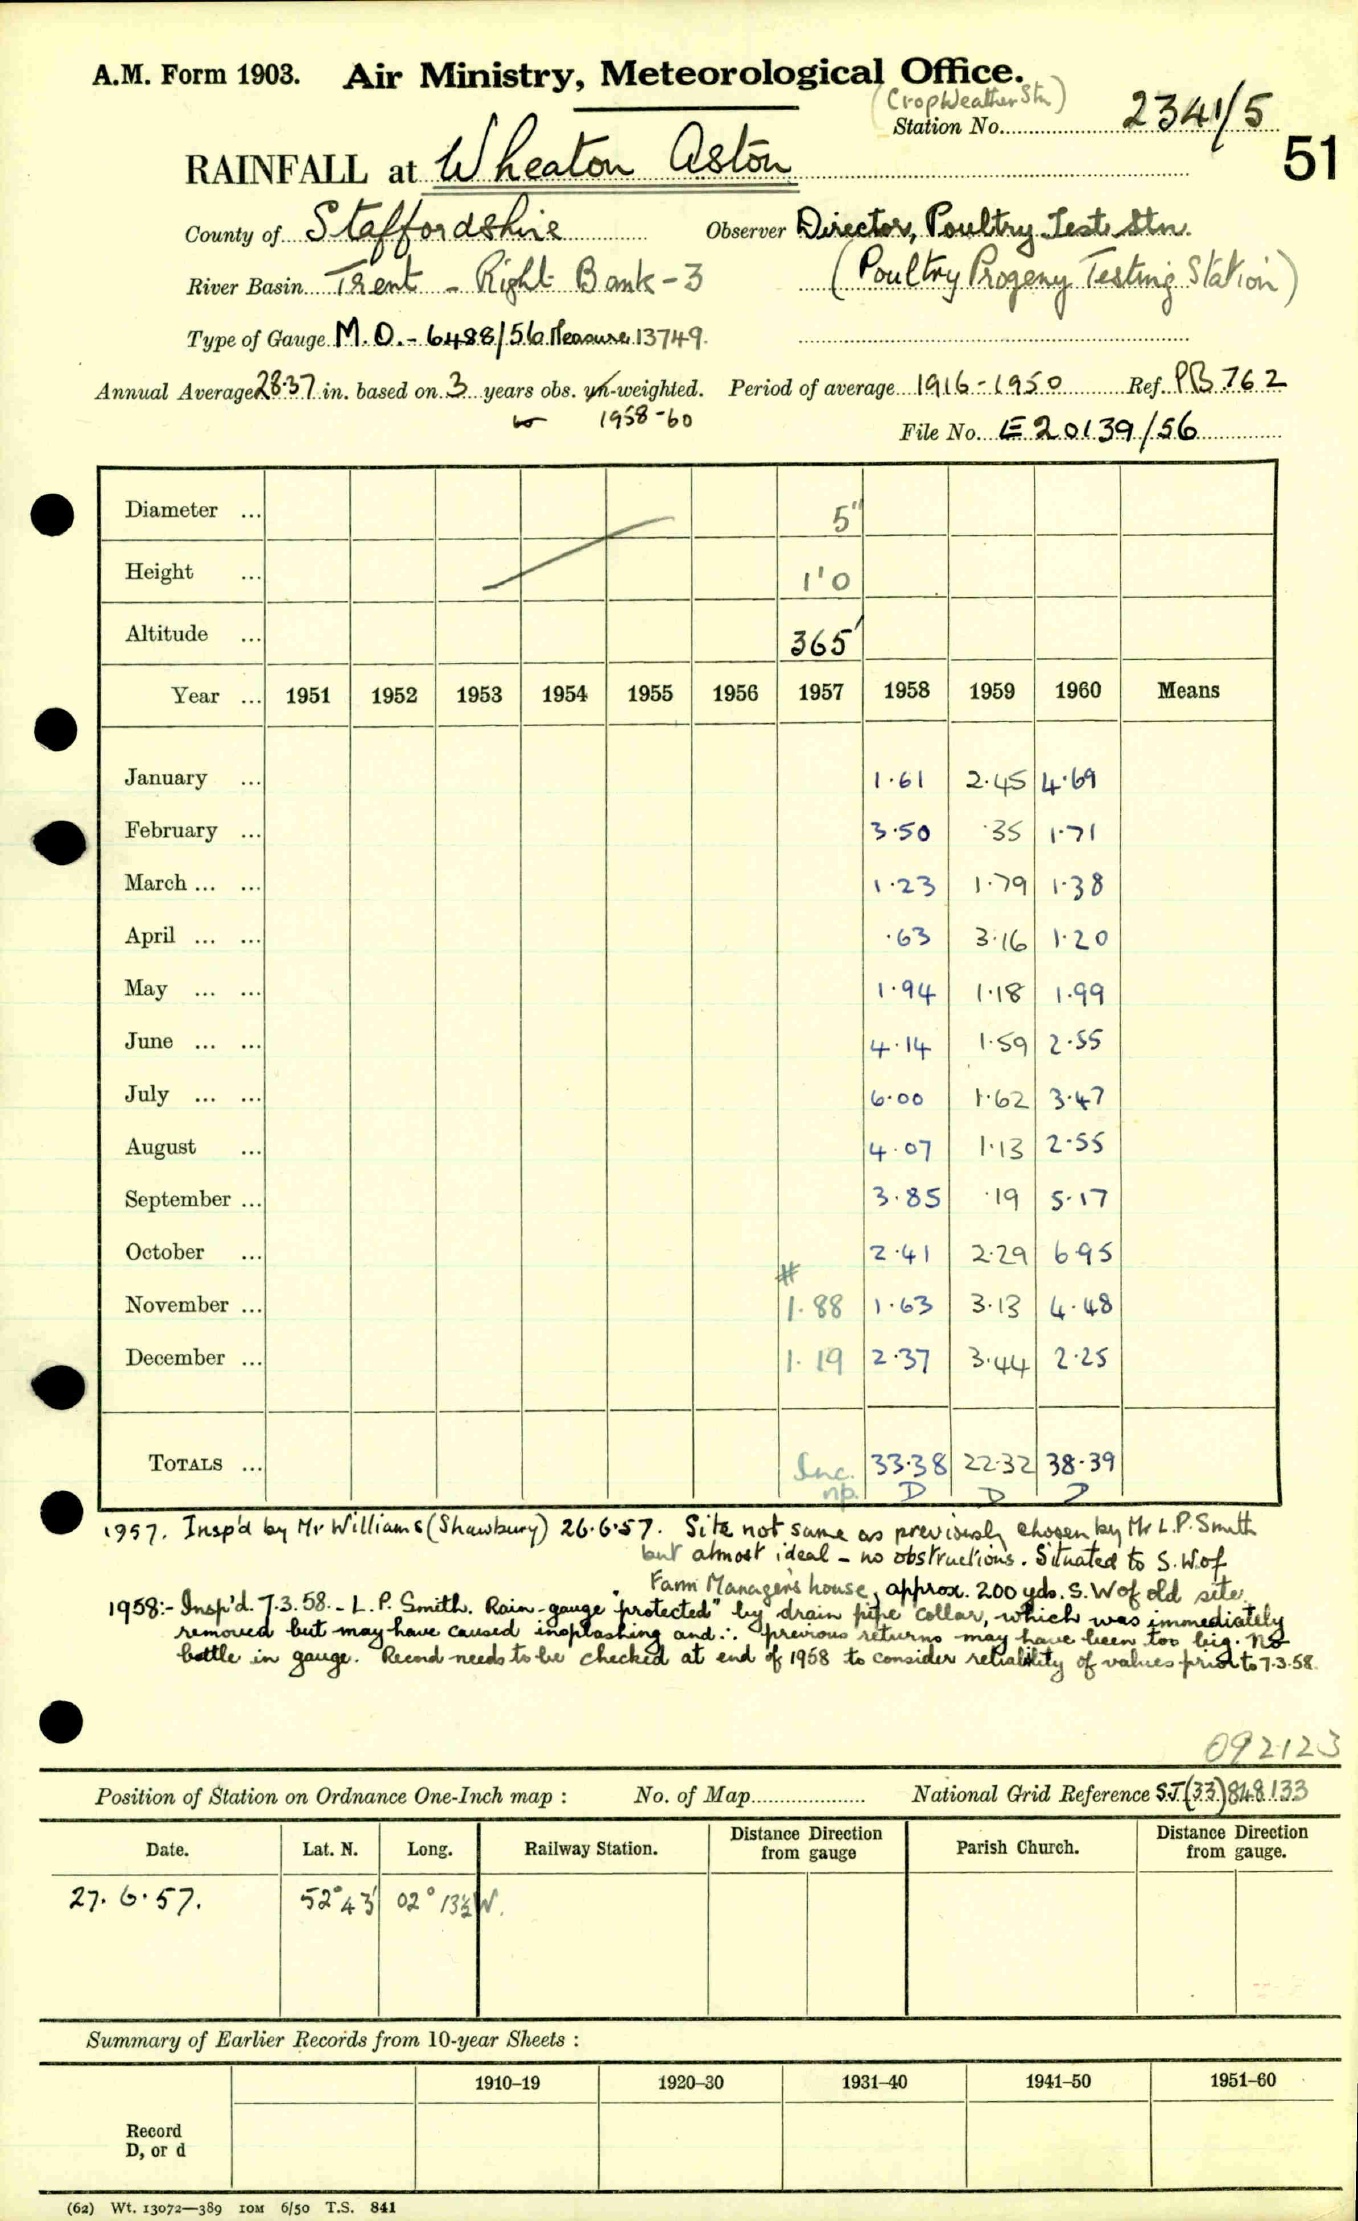 A.M. Form 1903. Air Ministry, Meteorological Office.
(CropWeather Stn)
Station No. 2341/5
51
RAINFALL at Wheaton Aston
County of Staffordshire Observer Director, Poultry Test Stn.
River Basin Trent - Right Bank - 3 (Poultry Progeny Testing Station)
Type of Gauge M.O. - 6488/56 Measure 13749.
Annual Average 28.37 in. based on 3 years obs. un-weighted. Period of average 1916-1950 Ref. PB 762
1958-60
File No. E20139/56
Diameter ... 5"
Height ... 1'0
Altitude ... 365'
Year ... 1951 1952 1953 1954 1955 1956 1957 1958 1959 1960 Means
January ... 1.61 2.45 4.69
February ... 3.50 .35 1.71
March ... ... 1.23 1.79 1.38
April ... ... .63 3.16 1.20
May ... ... 1.94 1.18 1.99
June ... ... 4.14 1.59 2.55
July ... ... 6.00 1.62 3.47
August ... 4.07 1.13 2.55
September ... 3.85 .19 5.17
October ... 2.41 2.29 6.95
#
November ... 1.88 1.63 3.13 4.48
December ... 1.19 2.37 3.44 2.25
TOTALS ... Inc. 33.38 22.32 38.39
np. D D D
1957. Insp'd by Mr Williams (Shawbury) 26.6.57. Site not same as previously chosen by Mr L.P. Smith
but almost ideal - no obstructions. Situated to S.W. of
Farm Manager's house, approx. 200 yds. S.W of old site.
1958:- Insp'd. 7.3.58. - L. P. Smith. Rain-gauge "protected" by drain pipe collar, which was immediately
removed but may have caused insplashing and ∴ previous returns may have been too big. No
bottle in gauge. Record needs to be checked at end of 1958 to consider reliability of values prior to 7.3.58.
092123
Position of Station on Ordnance One-Inch map : No. of Map National Grid Reference SJ (33) 848133
Date. Lat. N. Long. Railway Station. Distance from Direction gauge Parish Church. Distance from Direction gauge.
27.6.57. 52° 43' 02° 13½ W.
Summary of Earlier Records from 10-year Sheets :
1910–19 1920–30 1931–40 1941–50 1951–60
Record
D, or d
(62) Wt. 13072—389 10M 6/50 T.S. 841